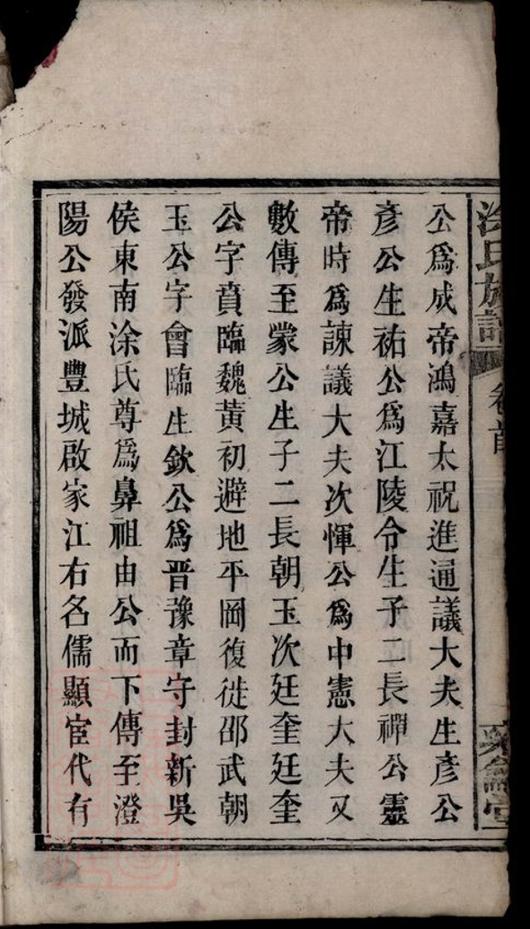 涂氏族譜
卷首
公爲成帝鴻嘉太祝進通議大夫生彥公
彥公生祐公爲江陵令生子二長禪公靈
帝時爲諫議大夫次惲公爲中憲大夫又
數傳至蒙公生子二長朝玉次廷奎廷奎
公字賁臨魏黃初避地平岡復徙邵武朝
玉公字會臨生欽公爲晉豫章守封新吳
侯東南涂氏尊爲鼻祖由公而下傳至澄
陽公發派豐城啟家江右名儒顯宦代有